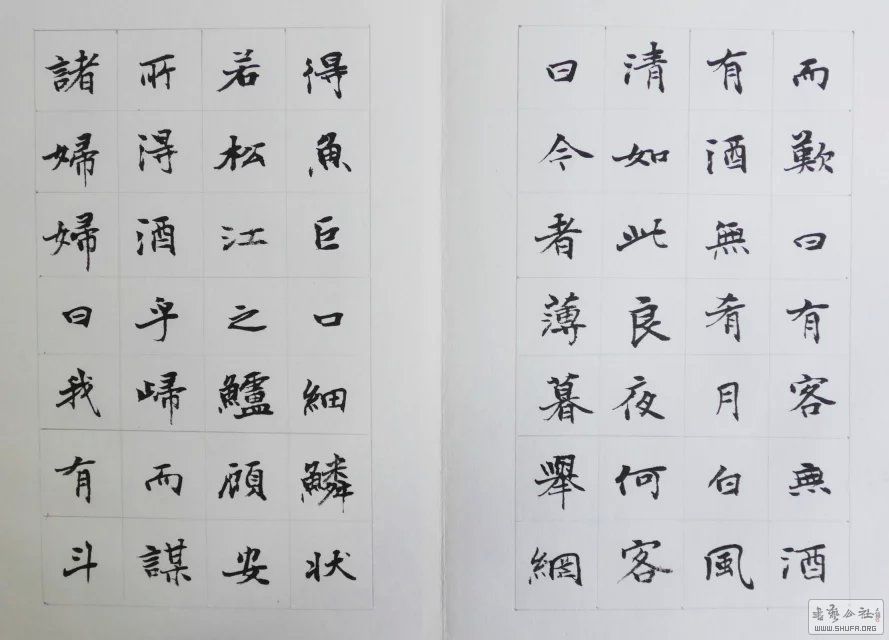 而歎曰有客無酒
有酒無肴月白風
清如此良夜何客
曰今者薄暮舉網
得魚巨口細鱗狀
若松江之鱸顧安
所得酒乎歸而謀
諸婦婦曰我有斗
WWW.SHUFA.ORG